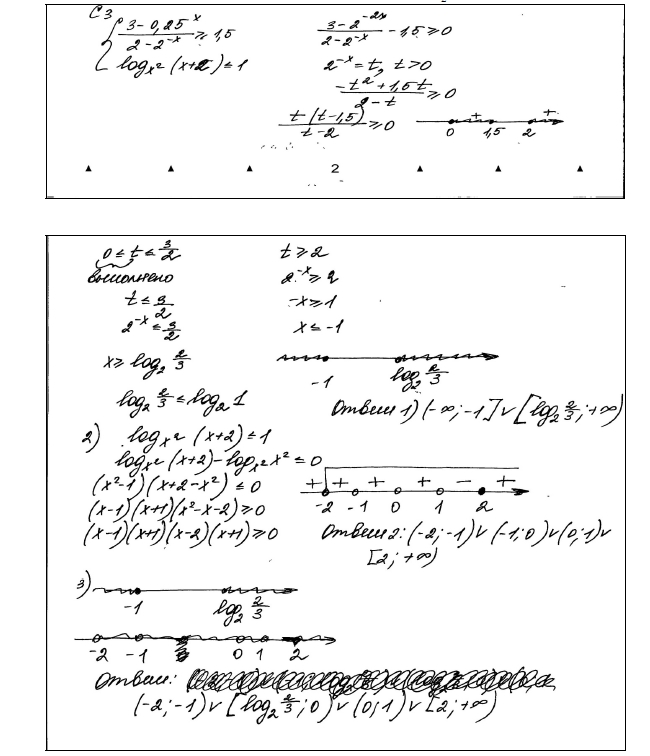 C3
{ (3-0,25^x)/(2-2^-x) ≥ 1,5
log_x² (x+2) ≤ 1
(3-2^-2x)/(2-2^-x) - 1,5 ≥ 0
2^-x = t, t>0
(-t²+1,5t)/(2-t) ≥ 0
t(t-1,5)/(t-2) ≥ 0
+ +
0 1,5 2
2
0 ≤ t ≤ 3/2
выполнено
t ≤ 3/2
2^-x ≤ 3/2
x ≥ log₂ 2/3
log₂ 2/3 ≤ log₂ 1
t ≥ 2
2^-x ≥ 2
-x ≥ 1
x ≤ -1
-1 log₂ 2/3
Ответ 1) (-∞; -1] ∨ [log₂ 2/3; +∞)
2) log_x² (x+2) ≤ 1
log_x² (x+2) - log_x² x² ≤ 0
(x²-1)(x+2-x²) ≤ 0
(x-1)(x+1)(x²-x-2) ≥ 0
(x-1)(x+1)(x-2)(x+1) ≥ 0
+ + + + - +
-2 -1 0 1 2
Ответ 2: (-2; -1) ∨ (-1; 0) ∨ (0; 1) ∨
[2; +∞)
3)
-1 log₂ 2/3
-2 -1 0 1 2
Ответ:
(-2; -1) ∨ [log₂ 2/3; 0) ∨ (0; 1) ∨ [2; +∞)